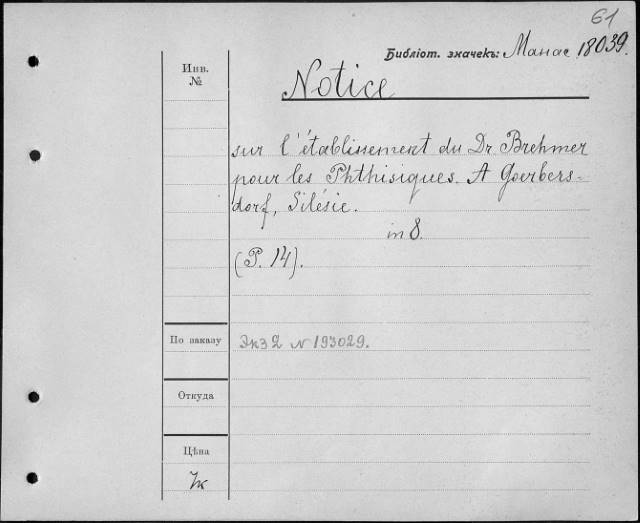 61
Библіот. значекъ: Манас 18039.
Инв.
№
Notice
sur l'établissement du Dr. Brehmer
pour les Phthisiques. A Goerbers-
dorf, Silésie.
in 8.
(P. 14).
По заказу
Экз 2 N 193029.
Откуда
Цѣна